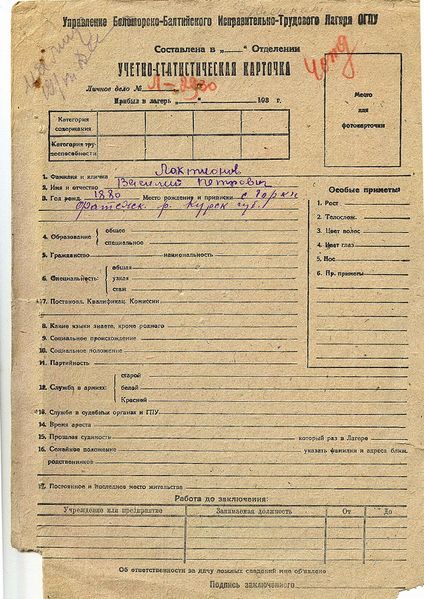 Управление Беломорско-Балтийского Исправительно-Трудового Лагеря ОГПУ
Составлена в „ “ Отделении
УЧЕТНО-СТАТИСТИЧЕСКАЯ КАРТОЧКА
Личное дело № Л-2930
Прибыл в лагерь „ “ 193 г.
Место
для
фотокарточки
Категория
содержания
Категория тру-
доспособности
1. Фамилия и кличка Локтионов
2. Имя и отчество Василий Петрович
3. Год рожд. 1880 Место рождения и приписки с. Горки
Фатежск. р. Курск губ.
4. Образование общее
специальное
5. Гражданство национальность
6. Специальность: общая
узкая
стаж
7. Постановл. Квалификац. Комиссии
8. Какие языки знаете, кроме родного
9. Социальное происхождение
10. Социальное положение
11. Партийность
Особые приметы:
1. Рост
2. Телослож.
3. Цвет волос
4. Цвет глаз
5. Нос
6. Пр. приметы
12. Служба в армиях: старой
белой
Красной
13. Служба в судебных органах и ГПУ
14. Время ареста
15. Прошлая судимость который раз в Лагере
16. Семейное положение указать фамилии и адреса ближ.
родственников
17. Постоянное и последнее место жительства
Работа до заключения:
Учреждение или предприятие Занимаемая должность От До
Об ответственности за дачу ложных сведений мне об'явлено
Подпись заключенного